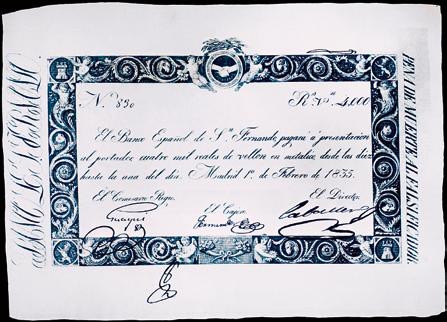 N.º 830 R.s V.n 4000
El Banco Español de S.n Fernando pagará á presentacion
al portador cuatro mil reales de vellon en metalico, desde las diez
hasta la una del dia. Madrid 1.º de Febrero de 1835.
El Comisario Regio. El Cajero El Director
PENA DE MUERTE AL FALSIFICADOR.